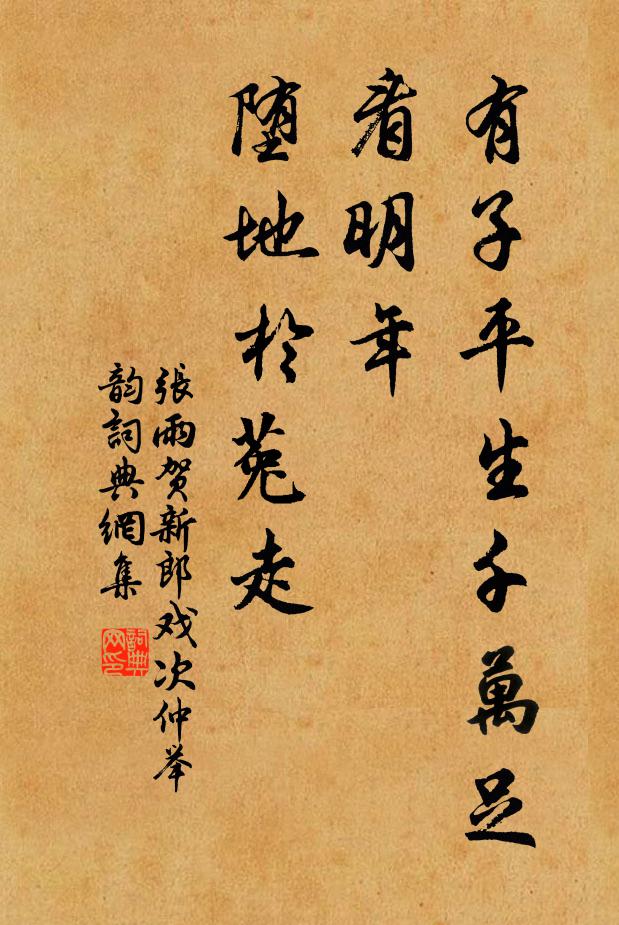 有子平生千萬足
看明年
堕地於菟走
張雨賀新郎戏次仲举
韵詞典網集
詞典
网印